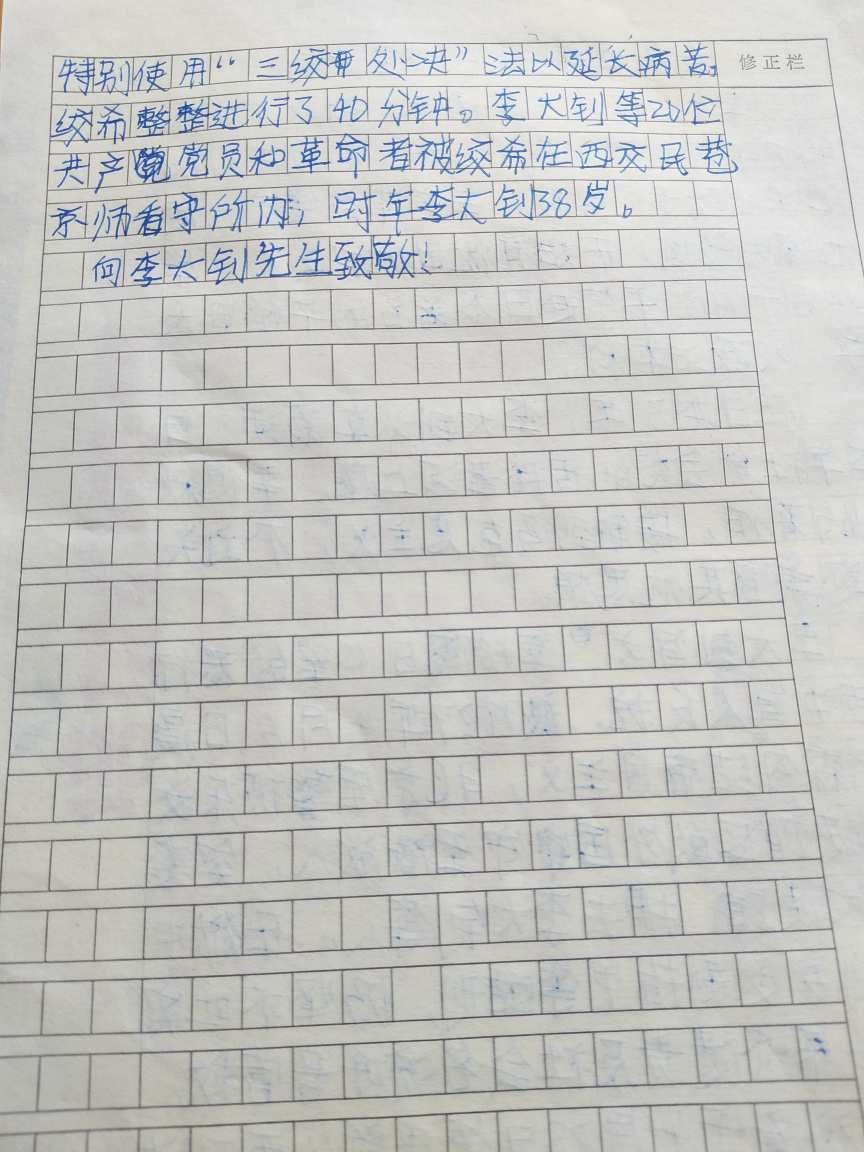 特别使用“三绞处决”法以延长病苦,
修正栏
绞希整整进行了40分钟。李大钊等20位
共产党党员和革命者被绞希在西交民巷
京师看守所内,时年李大钊38岁。
向李大钊先生致敬!